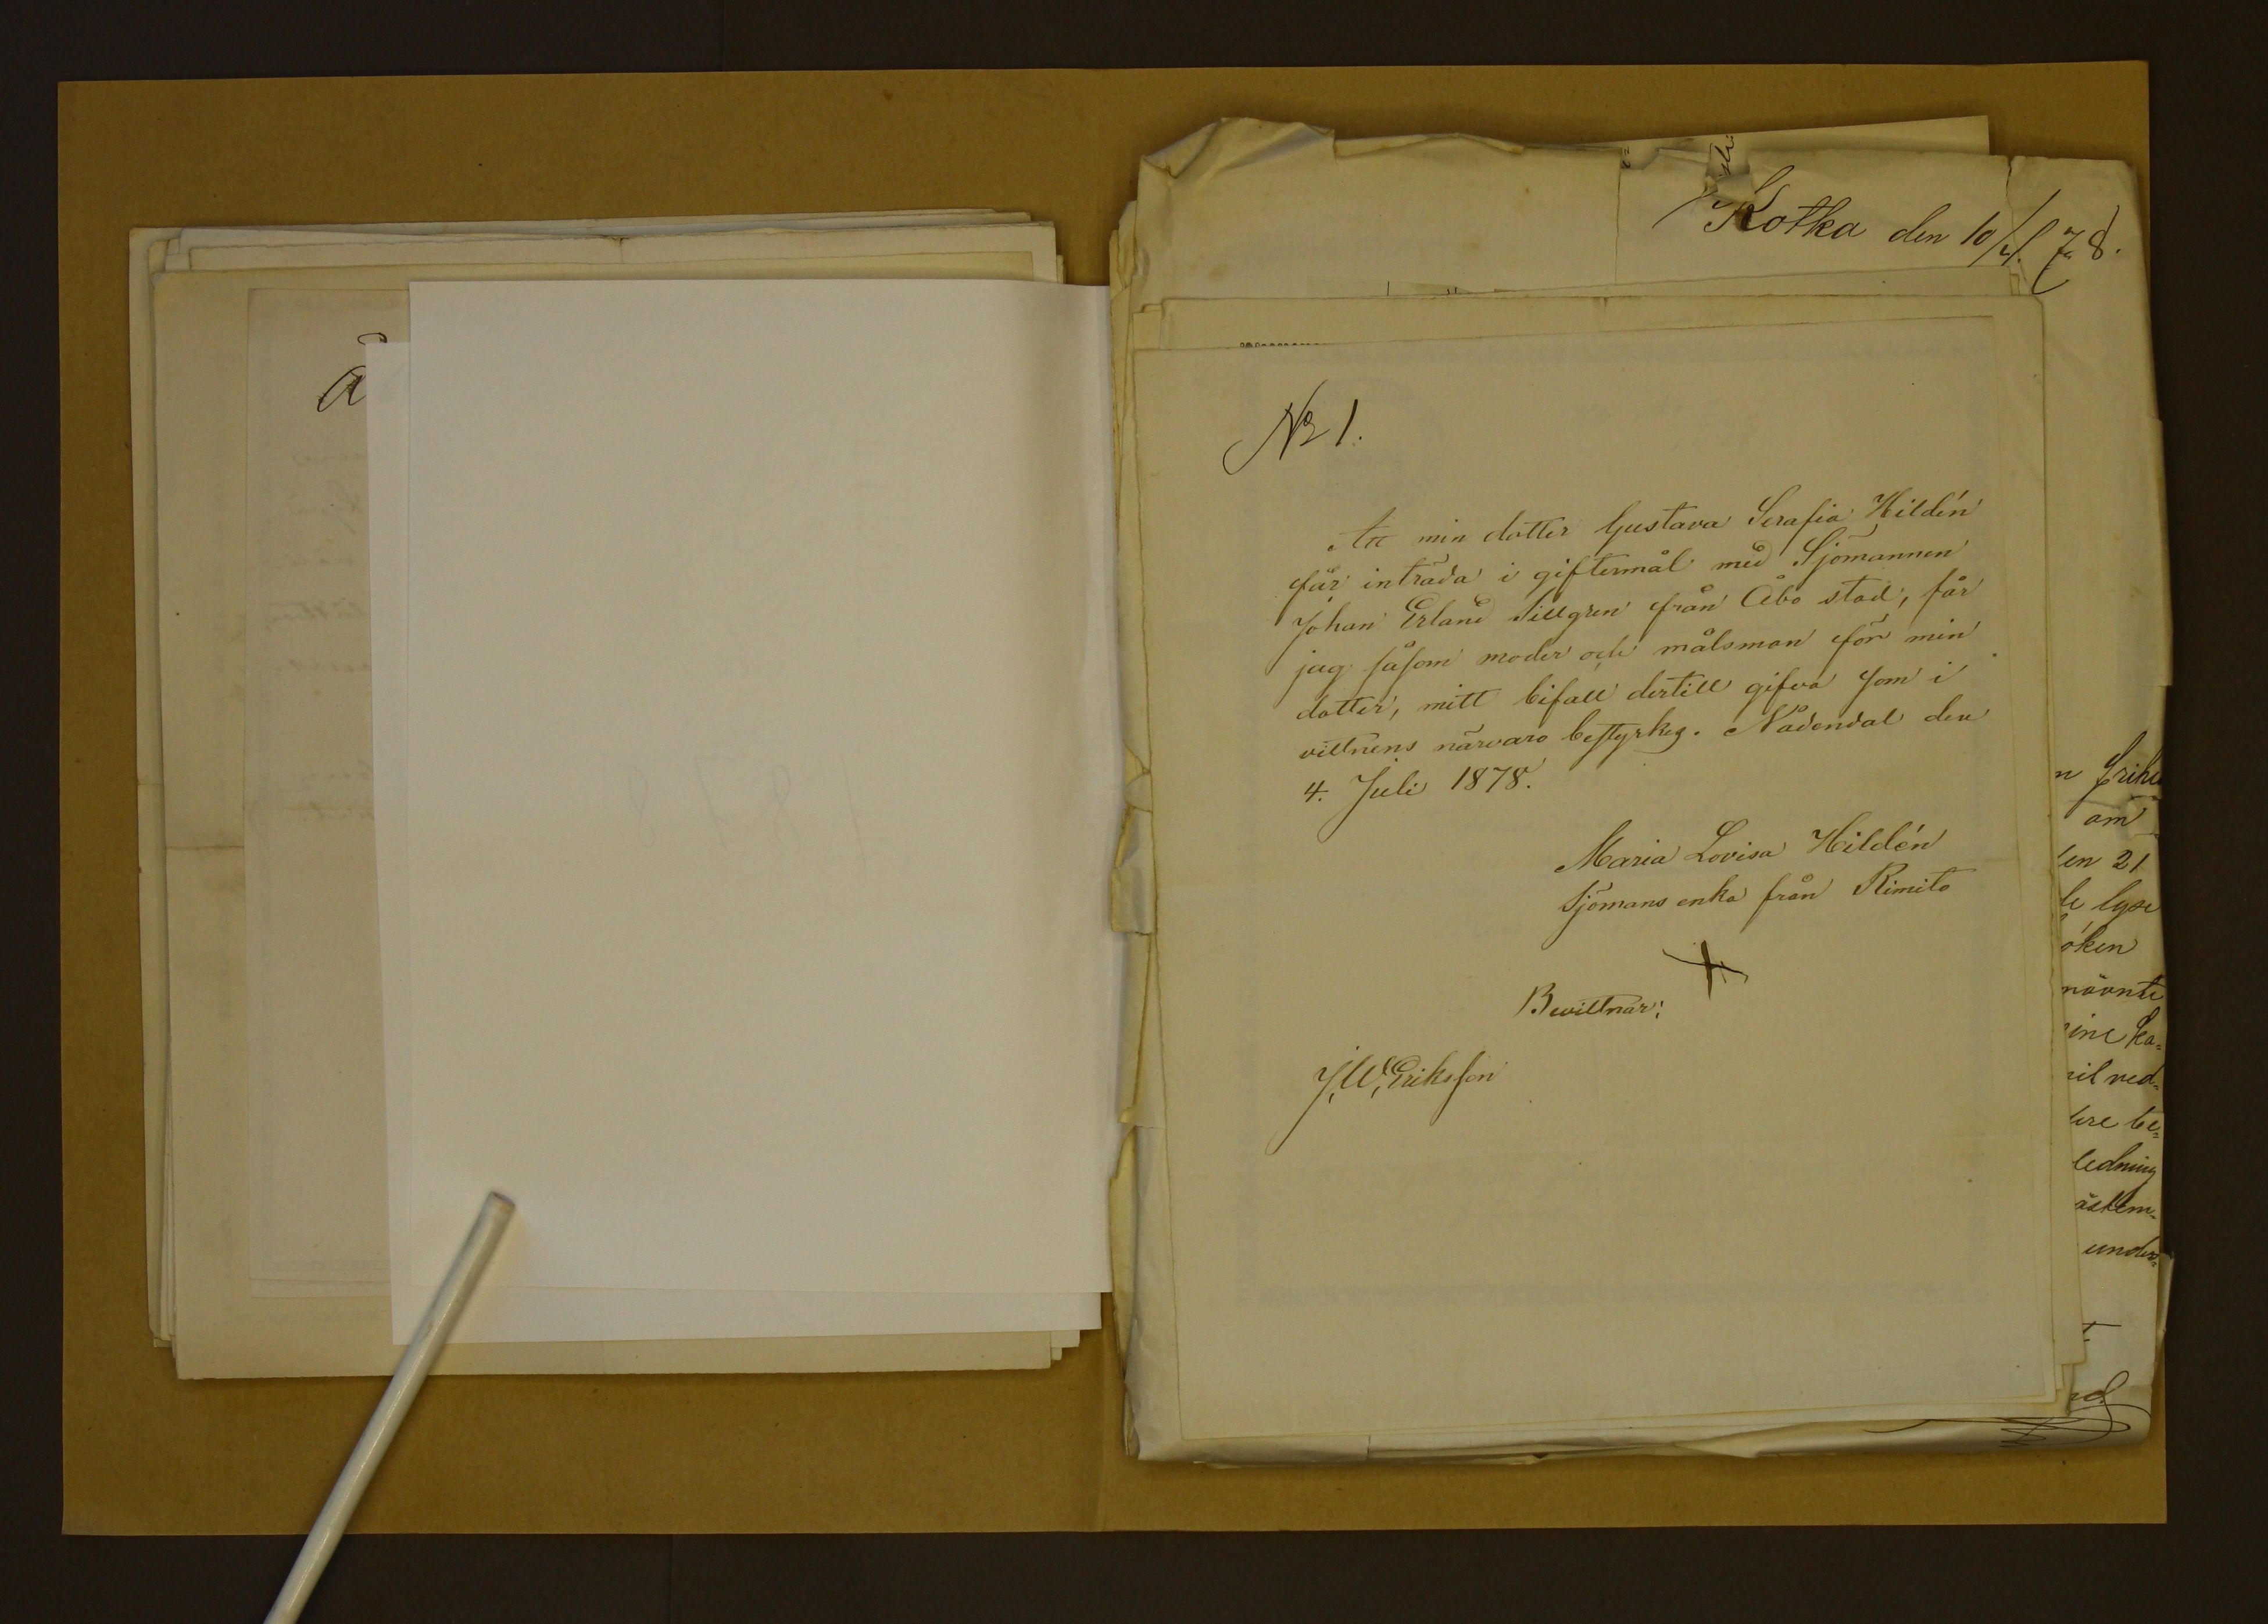 Kotka den 10/4. 78.
No 1.
Att min dotter Gustava Serafia Hildén
får inträda i giftermål med Sjömannen
Johan Erland Sillgren från Åbo stad, får
jag såsom moder och målsman för min
dotter, mitt bifall dertill gifva som i
vittnens närvaro bestyrkes. Nådendal den
4. Juli 1878.
Maria Lovisa Hildén
Sjömans enka från Rimito
Bewittnar:
J. W. Eriksson
om
en 21
lyse
öken
ine ka=
ved=
ere be=
ledning
under=
1878